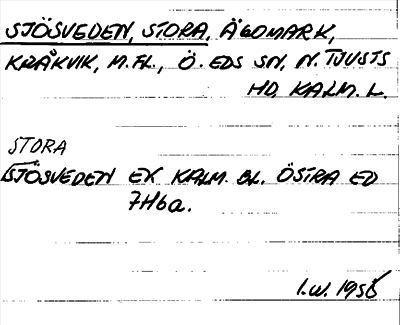 SJÖSVEDEN, STORA, ÄGOMARK,
KRÅKVIK, M.FL., Ö. EDS SN, N. TJUSTS
HD. KALM. L.
STORA
SJÖSVEDEN EK KALM. BL. ÖSTRA ED
7H6a.
I.W. 1956